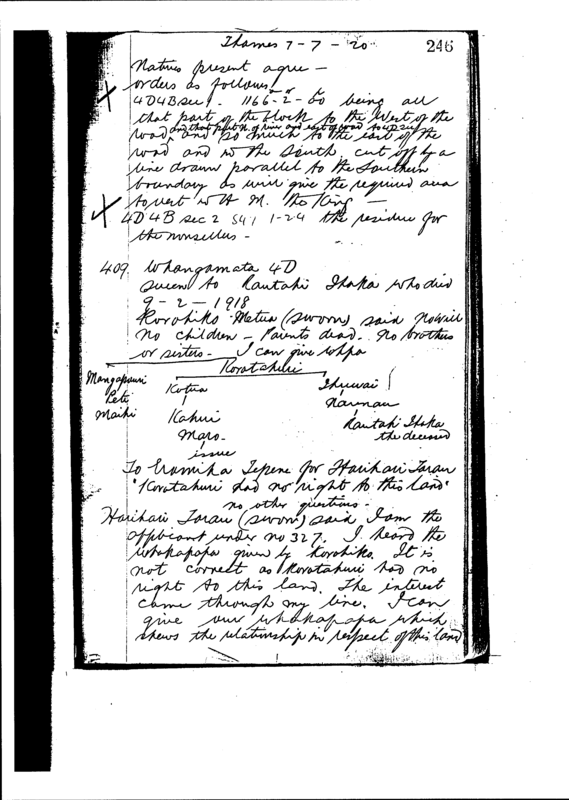 Thames 7-7-20 246
Natives present agree -
orders as follows
4D4B sec 1. 1166-2-00 being all
that part of the block to the West of the
road, and so much to the east of the
road and to the South cut off by a
line drawn parallel to the Southern
boundary as will give the required area
to vest in H. M. the King -
4D 4B sec 2 541 1-24 the residue for
the nonsellers -
409. Whangamata 4D
Succn to Rautahi Ihaka who died
9-2-1918
Korohiko Metua (sworn) said No will
No children - Parents dead. No brothers
or sisters. I can give whpa
Koratahuri
Mangapouri Kotua Ihuwai
Pete Naunau
Maihi Kahui Rautahi Ihaka
Maro. the deceased
issue
To Eramiha Tepene for Harihari Tarau
"Koratahuri had no right to this land"
no other questions.
Harihari Tarau (sworn) said I am the
applicant under no 327. I heard the
whakapapa given by Korohiko. It is
not correct as Koratahuri had no
right to this land. The interest
came through my line. I can
give our whakapapa which
shews the relationship in respect of this land